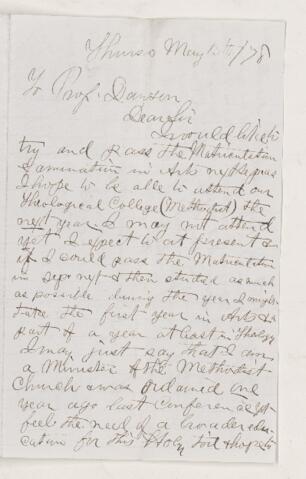 Thurso May 1st /78
To Prof. Dawson
Dear Sir
I would like to
try and pass the Matriculation
Examination in Arts next Sep as
I hope to be able to attend our
Theological College (Methodist) the
next year. I may not attend
yet I expect to at present &
if I could pass the Matriculation
in Sep next & then studied as much
as possible during the year I might
take the first year in Arts &
part of a year at least in Theology
I may just say that I am
a Minister of the Methodist
Church & was ordained one
year ago last Conference yet
feel the need of a broader edu-
cation for this Holy toil & hope to